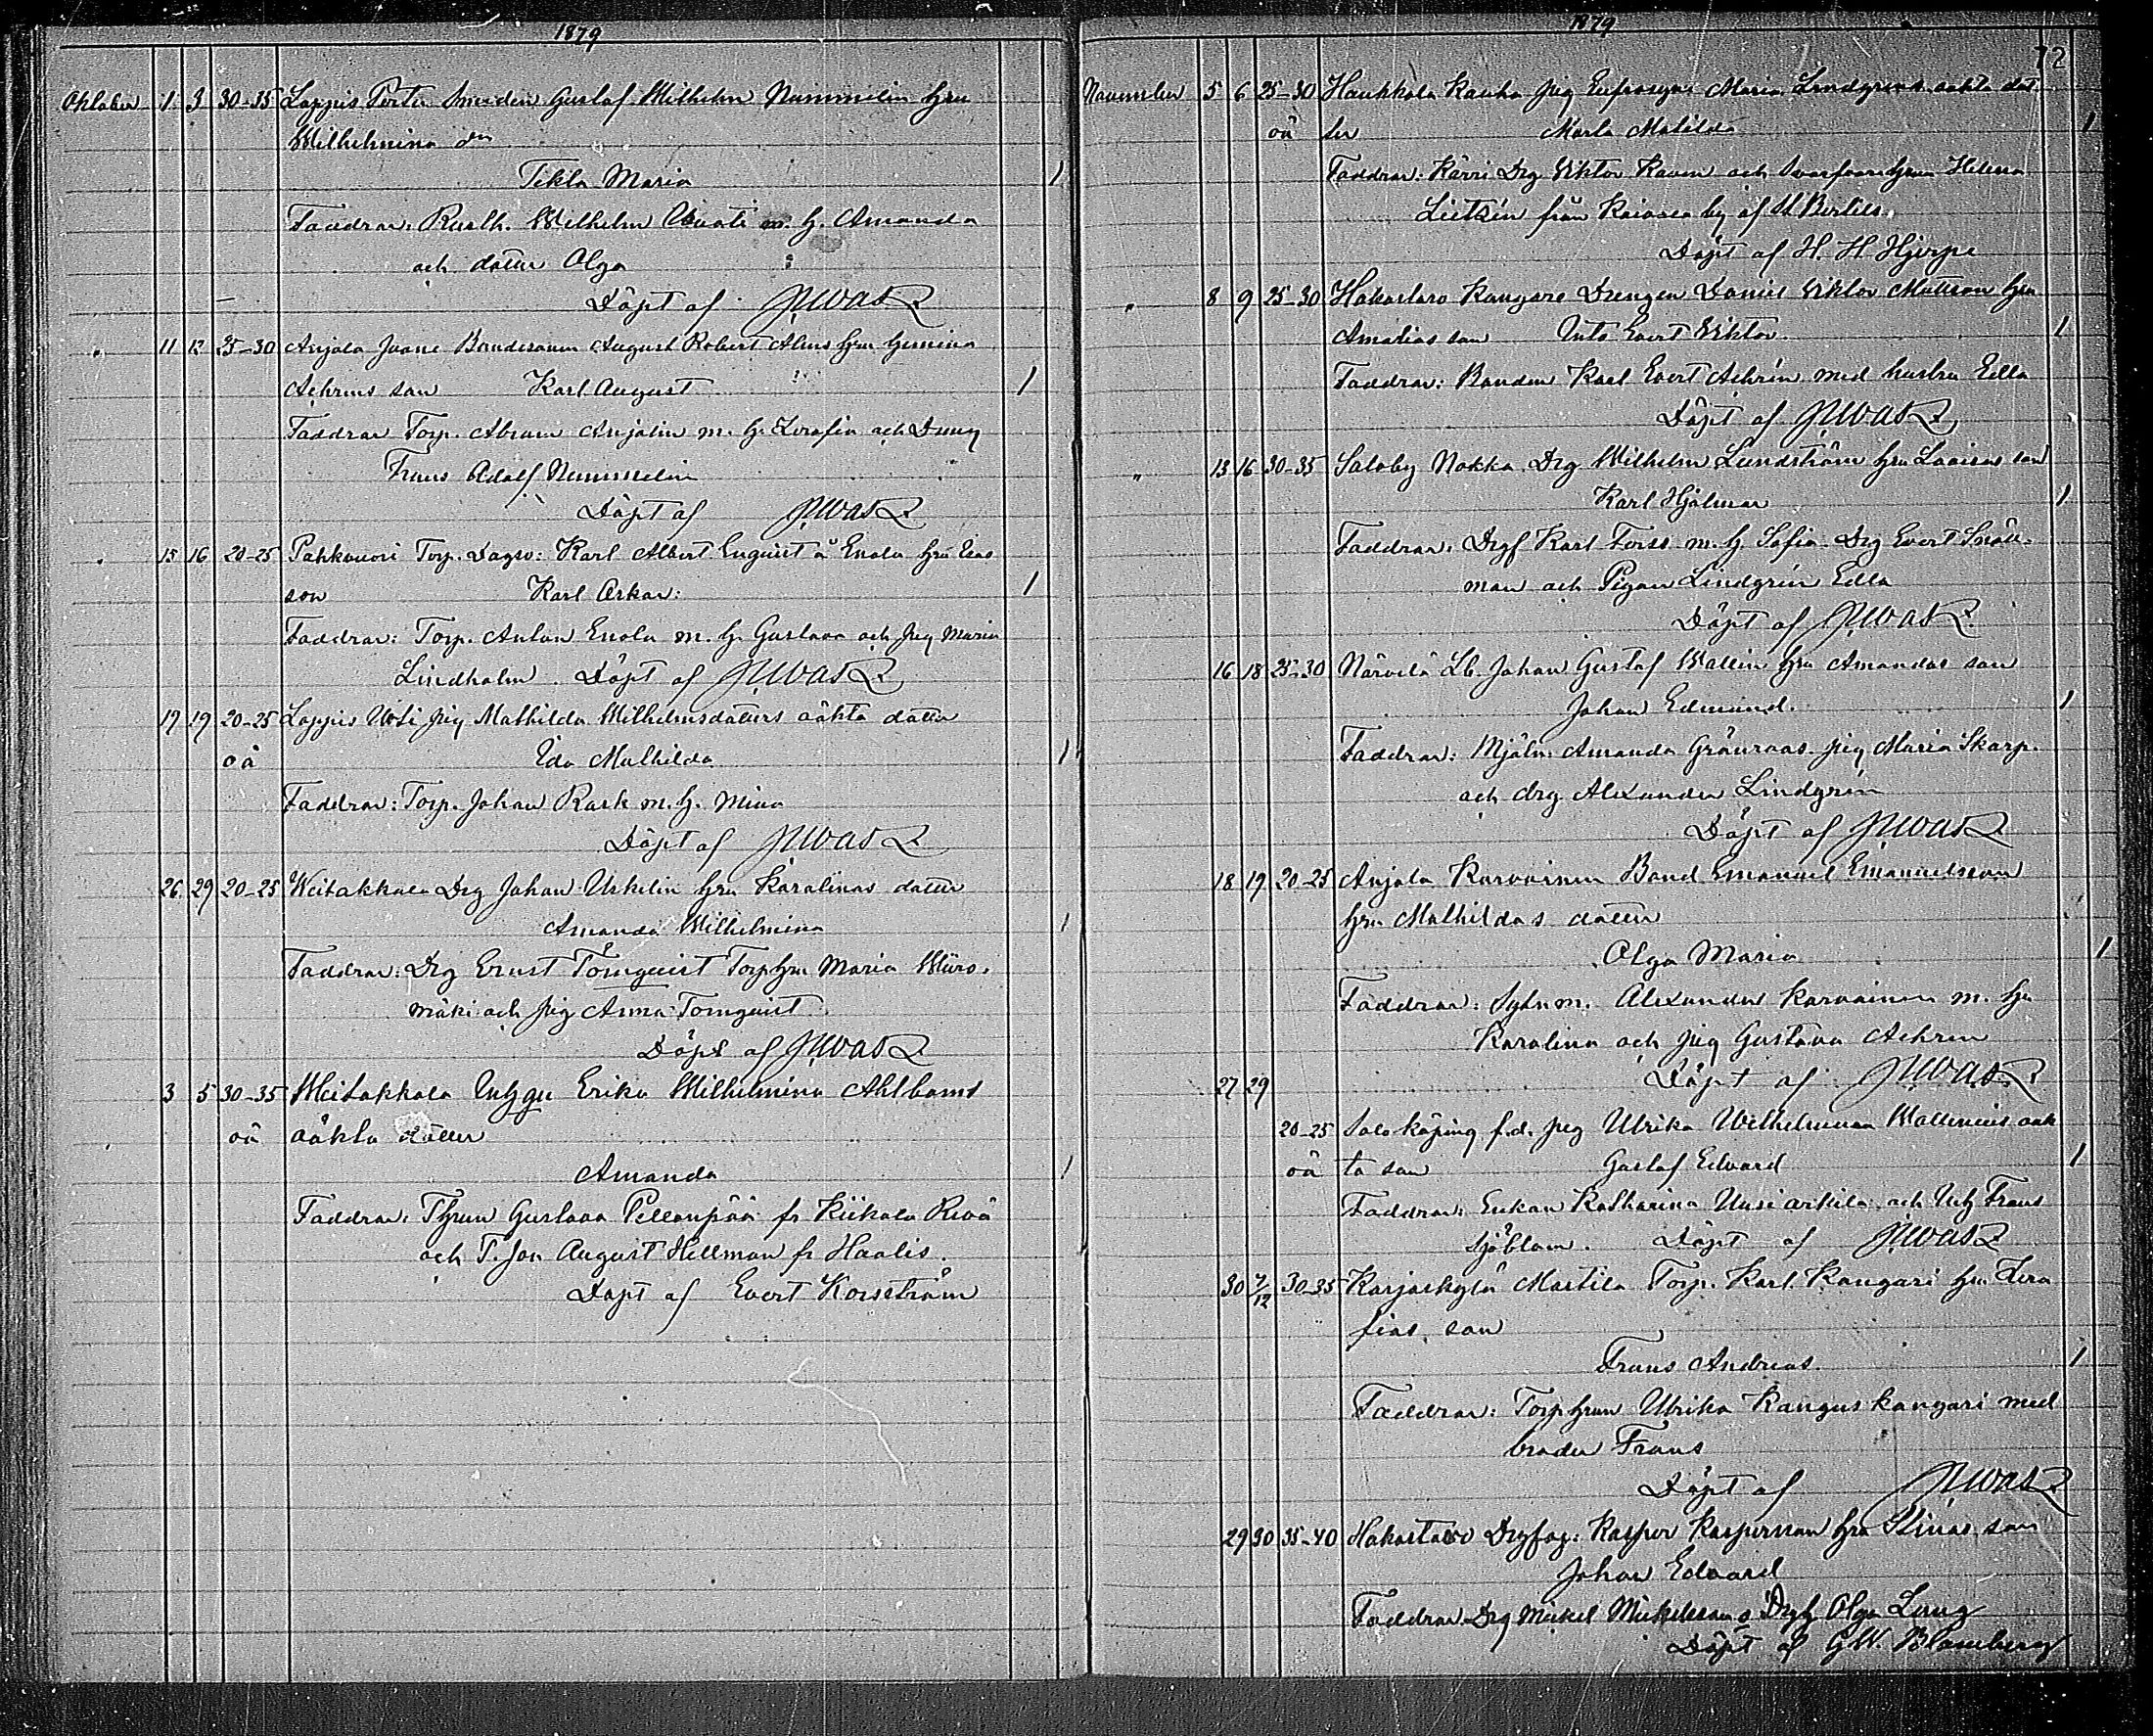 1879
Oktober 1 3 30-35 Lappis Pertti Smeden Gustaf Wilhelm Nummelin hru
Wilhelmina dr
Tekla Maria 1
Faddrar: Rusth. Wilhelm m. h. Amanda
och dotter Olga
Döpt af
" 11 12 25-30 Anjala Juane Bondesonen August Robert Alens hru
Achrens son Karl August 1
Faddrar Torp. Abram Anjalin m. h. Serafia och Dreng
Frans Adolf Nummelin
Döpt af
" 15 16 20-25 Pahkavori Torp. Dagsv: Karl Albert Enquist å Enola hru Evas
son Karl Oskar: 1
Faddrar: Torp. Anton Enola m. h. Gustava och pig Maria
Lindholm. Döpt af
17 19 20-25 Lappis Uoti pig Mathilda Wilhelmsdotters oäkta dotter
oä Ida Mathilda 1
Faddrar: Torp. Johan Rask m. h. Mina
Döpt af
26 29 20-25 Weitakkala Drg Johan Uskelin hru Karolinas dotter
Amanda Wilhelmina 1
Faddrar: Drg Ernst Törnquist Torp hru Maria
mäki och pig Anna Tornquist
Döpt af
3 5 30-35 Weitakkala Inhyses Erika Wilhelmina Ahlboms
oä oäkta dotter
Amanda 1
Faddrar: Thrun Gustava Pellonpää fr Kiikala
och T. Jon August Hellman fr Haalis.
Döpt af Evert Korsström
1879
72
November 5 6 25-30 Haukkala Kauha pig Eufrosyne Maria Lindgrens oäkta dot
oä ter Marta Matilda 1
Faddrar: Kärri Drg Viktor Raven och hrun Helena
från by af St Bertils.
Döpt af H. H. Hjerpe
" 8 9 25-30 Hakastaro Kangare Drengen Daniel Viktor Mattson hru
Amalias son Evert Viktor. 1
Faddrar: Bonden Karl Evert Achrén med hustru Edla
Döpt af
" 13 16 30-35 Saloby Nokka Drg Wilhelm Lundström hru Lovisas son
Karl Hjalmar 1
Faddrar: Drgf Karl Forss m. h. Sofia. Drg Evert Snäll-
man och Pigan Lindgrén Edla
Döpt af
16 18 25-30 Närvilä Lb. Johan Gustaf Wallin hru Amandas son
Johan Edmund. 1
Faddrar: Mjöln. Amanda Grönroos. pig Maria Skarp.
och drg Alexander Lindgrén
Döpt af
18 19 20-25 Anjala Karvainen Bond Emanuel Emanuelsson
hru Mathildas dotter
Olga Maria 1
Faddrar: Sytn m. Alexander Karvainen m. hu
Karolina och pig Gustava Achren
27 29 Döpt af
20-25 Salo köping f.d. pig Ulrika Wilhelmina Wallenius oäk
oä ta son Gustaf Edvard 1
Faddrar: Enkan Katharina Uusi arkila och Inh Frans
Sjöblom. Döpt af
30 7/12 30-35 Karjaskylä Martila Torp. Karl Kangari hru Sera
fias, son
Frans Andreas. 1
Faddrar: Torp hrun Ulrika Kangus kangari med
broder Frans
Döpt af
29 30 35-40 Hakastaro Drgfog: Kasper Kaspersson hru Stinas, son
Johan Edvard
Faddrar. Drg Mickel Mickelsson o Drgh Olga Lang
Döpt af G. W. Blomberg